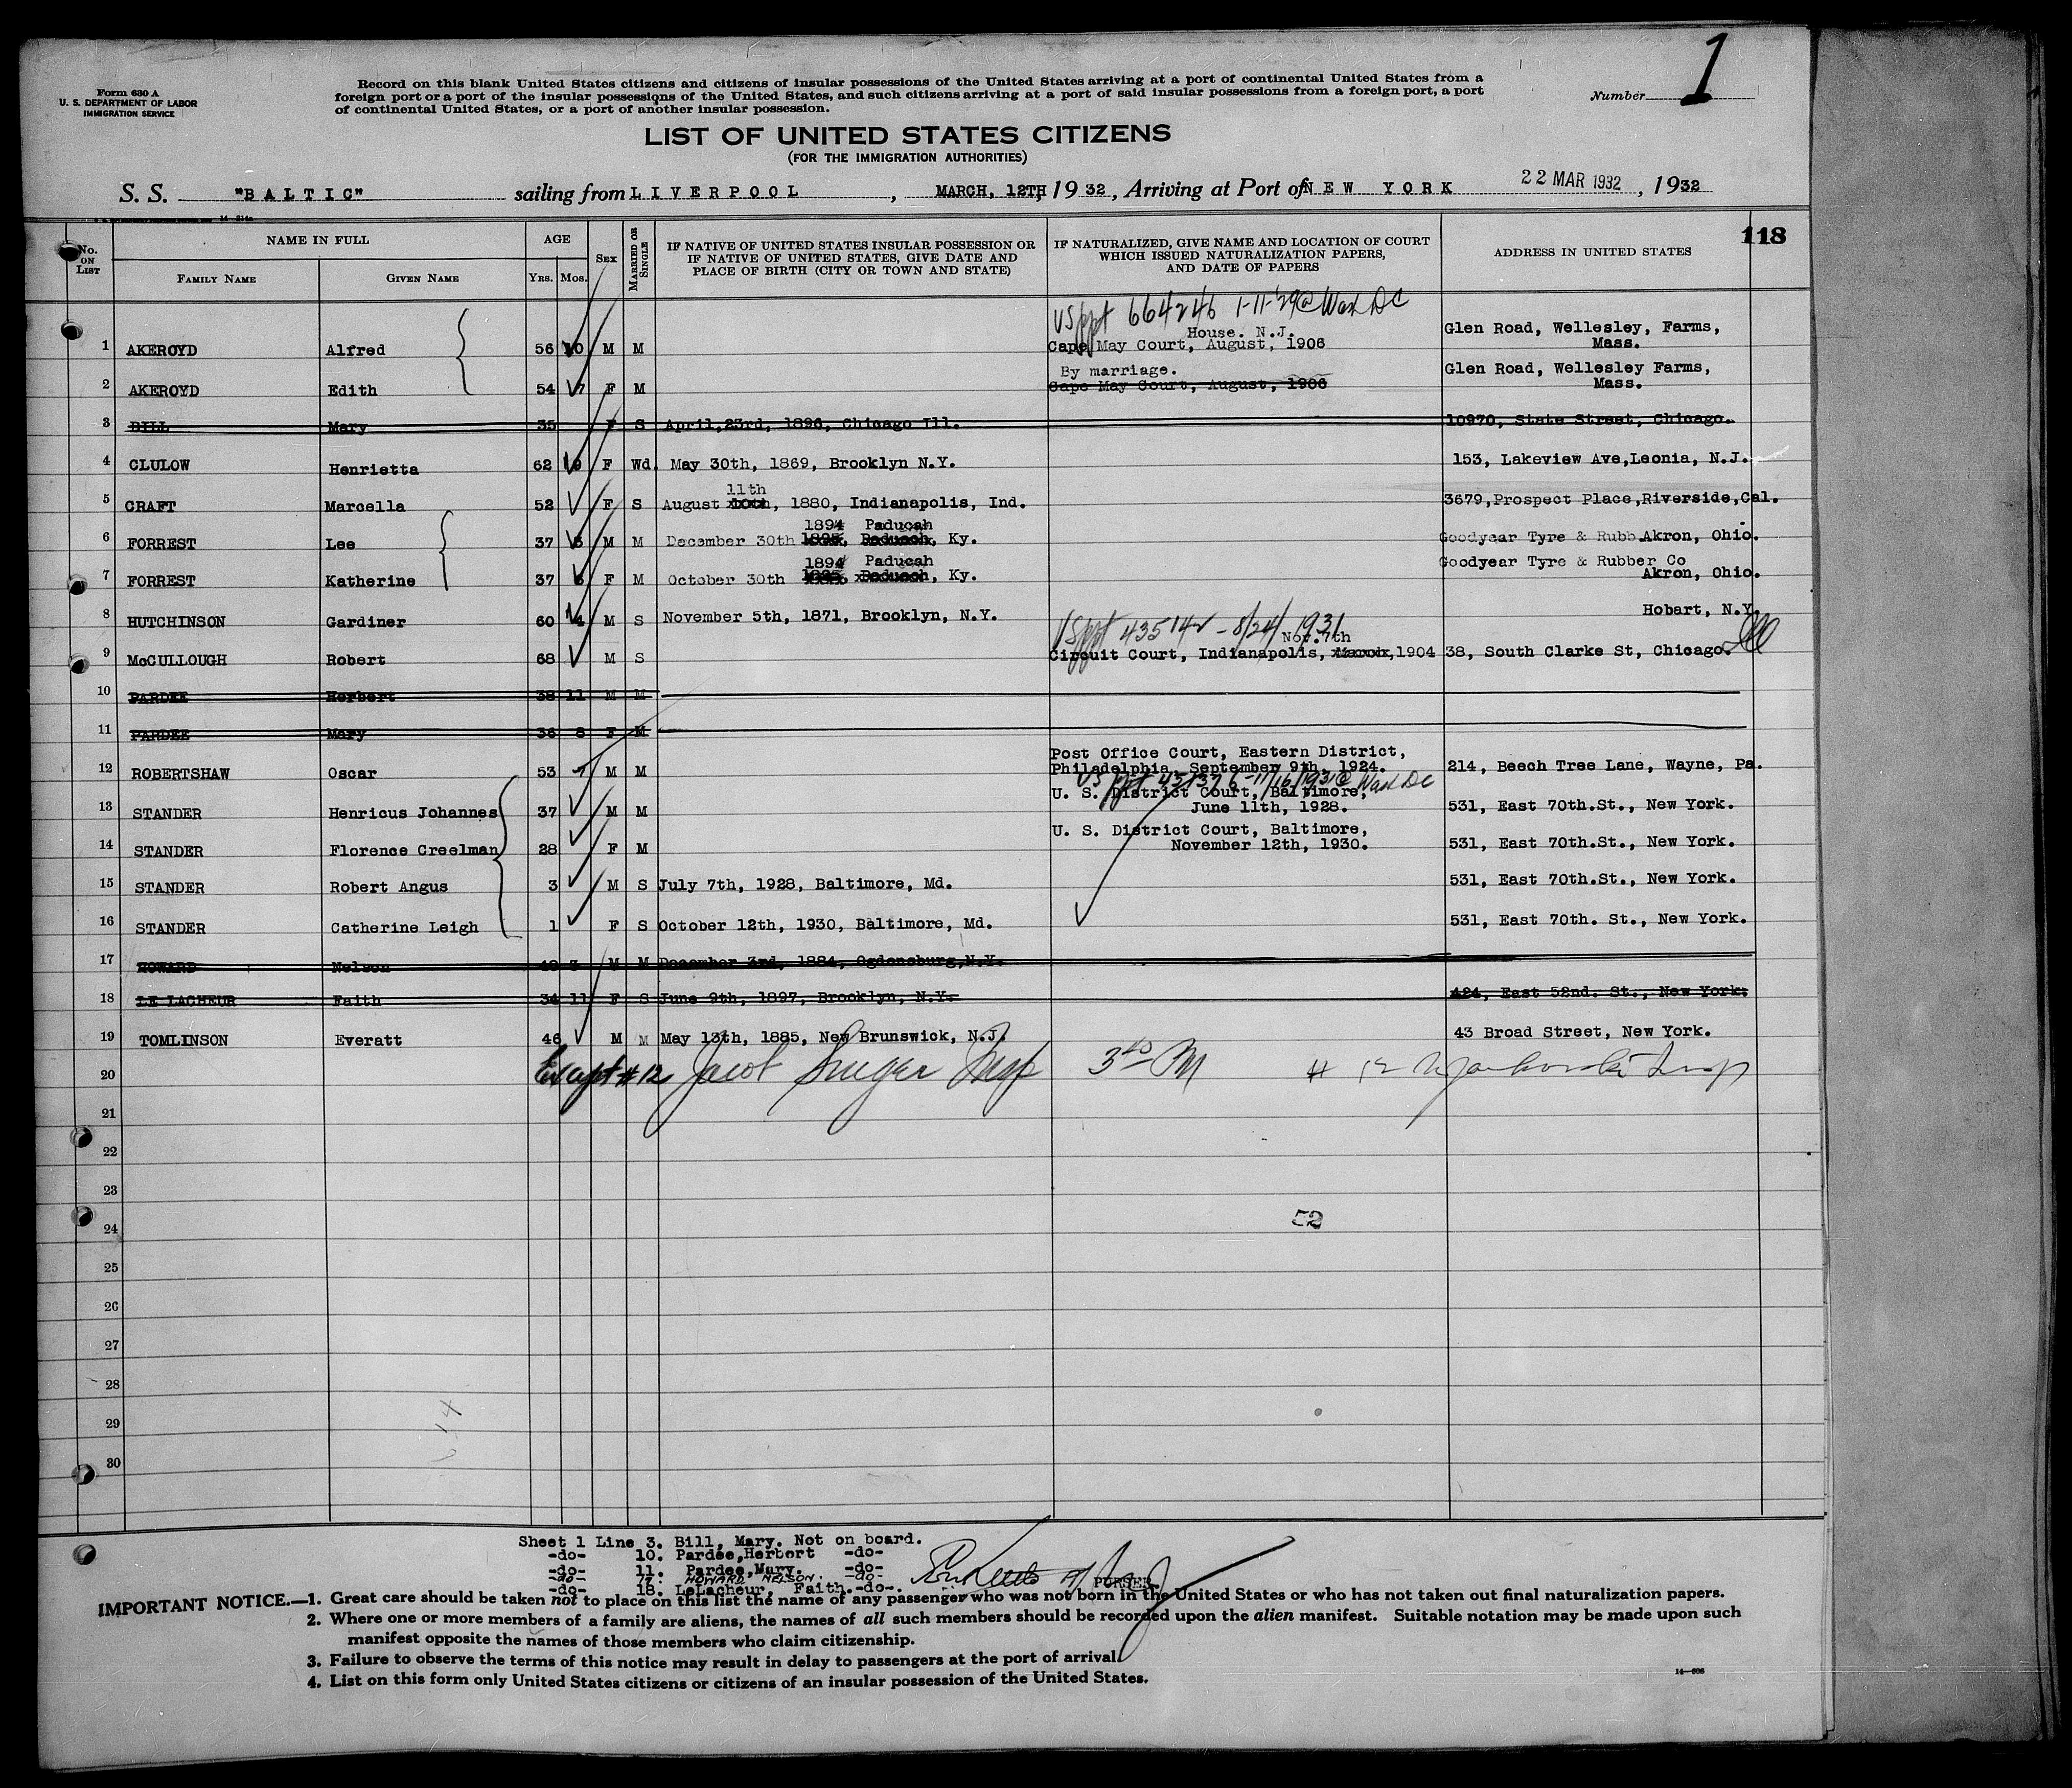 1
Form 630 A
U. S. DEPARTMENT OF LABOR
IMMIGRATION SERVICE
Record on this blank United States citizens and citizens of insular possessions of the United States arriving at a port of continental United States from a
foreign port or a port of the insular possessions of the United States, and such citizens arriving at a port of said insular possessions from a foreign port, a port
of continental United States, or a port of another insular possession.
Number
LIST OF UNITED STATES CITIZENS
(FOR THE IMMIGRATION AUTHORITIES)
S. S. "BALTIC" sailing from LIVERPOOL, MARCH, 12TH, 1932, Arriving at Port of NEW YORK 22 MAR 1932, 1932
118
No. ON LIST
NAME IN FULL
FAMILY NAME GIVEN NAME
AGE
Yrs. Mos.
SEX
MARRIED OR SINGLE
IF NATIVE OF UNITED STATES INSULAR POSSESSION OR
IF NATIVE OF UNITED STATES, GIVE DATE AND
PLACE OF BIRTH (CITY OR TOWN AND STATE)
IF NATURALIZED, GIVE NAME AND LOCATION OF COURT
WHICH ISSUED NATURALIZATION PAPERS,
AND DATE OF PAPERS
ADDRESS IN UNITED STATES
US ppt 664246 1-11-29 @ Wash DC
House. N.J.
1 AKEROYD Alfred 56 10 M M Cape May Court, August, 1906 Glen Road, Wellesley, Farms, Mass.
By marriage.
2 AKEROYD Edith 54 7 F M Cape May Court, August, 1906 Glen Road, Wellesley Farms, Mass.
3 BILL Mary 35 F S April,23rd, 1896, Chicago Ill. 10970, State Street, Chicago.
4 CLULOW Henrietta 62 9 F Wd. May 30th, 1869, Brooklyn N.Y. 153, Lakeview Ave,Leonia, N.J.
11th
5 CRAFT Marcella 52 F S August 10th, 1880, Indianapolis, Ind. 3679,Prospect Place,Riverside,Cal.
1894 Paducah
6 FORREST Lee 37 M M December 30th 1895, Paducah, Ky. Goodyear Tyre & Rubb Akron, Ohio.
1894 Paducah
7 FORREST Katherine 37 F M October 30th Ky. Goodyear Tyre & Rubber Co Akron, Ohio.
8 HUTCHINSON Gardiner 60 4 M S November 5th, 1871, Brooklyn, N.Y. Hobart, N.Y.
US ppt 435142 - 8/24/1931
Nov. 7th
9 McCULLOUGH Robert 68 M S Circuit Court, Indianapolis, 1904 38, South Clarke St, Chicago.
10 PARDEE Herbert 38 11 M M
11 PARDEE Mary 36 8 F M
12 ROBERTSHAW Oscar 53 7 M M Post Office Court, Eastern District, Philadelphia, September 9th, 1924. 214, Beech Tree Lane, Wayne, Pa.
US ppt 451376-11/16/1931 @ Wash DC
13 STANDER Henricus Johannes 37 M M U. S. District Court, Baltimore, June 11th, 1928. 531, East 70th.St., New York.
14 STANDER Florence Creelman 28 F M U. S. District Court, Baltimore, November 12th, 1930. 531, East 70th.St., New York.
15 STANDER Robert Angus 3 M S July 7th, 1928, Baltimore, Md. 531, East 70th.St., New York.
16 STANDER Catherine Leigh 1 F S October 12th, 1930, Baltimore, Md. 531, East 70th. St., New York.
17 HOWARD Nelson 3 M M December 3rd, 1884, Ogdensburg,N.Y.
18 LE LACHEUR Faith 34 11 F S June 9th, 1897, Brooklyn, N.Y. 424, East 52nd. St., New York.
19 TOMLINSON Everatt 46 M M May 13th, 1885, New Brunswick, N.J. 43 Broad Street, New York.
20 Except #12 Insp 3rd # 12 Insp
21
22
23
24 52
25
26
27
28
29
30
Sheet 1 Line 3. Bill, Mary. Not on board.
-do- 10. Pardee,Herbert -do-
-do- 11. Pardee,Mary. -do-
-do- 17. HOWARD NELSON. -do-
-do- 18. LeLacheur, Faith.-do-.
PURSER.
IMPORTANT NOTICE.—1. Great care should be taken not to place on this list the name of any passenger who was not born in the United States or who has not taken out final naturalization papers.
2. Where one or more members of a family are aliens, the names of all such members should be recorded upon the alien manifest. Suitable notation may be made upon such
manifest opposite the names of those members who claim citizenship.
3. Failure to observe the terms of this notice may result in delay to passengers at the port of arrival.
4. List on this form only United States citizens or citizens of an insular possession of the United States.